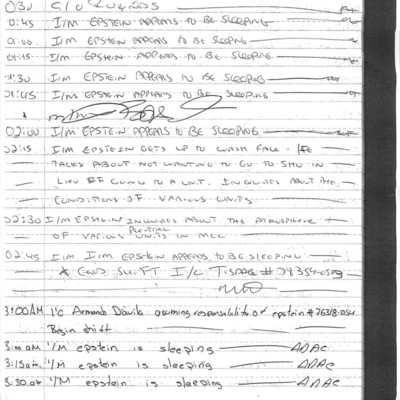 0:30 C/O ROUNDS
0:45 I/M EPSTEIN APPEARS TO BE SLEEPING
01:00 I/M EPSTEIN APPEARS TO BE SLEEPING
01:15 I/M EPSTEIN APPEARS TO BE SLEEPING
01:30 I/M EPSTEIN APPEARS TO BE SLEEPING
01:45 I/M EPSTEIN APPEARS TO BE SLEEPING
02:00 I/M EPSTEIN APPEARS TO BE SLEEPING
02:15 I/M EPSTEIN GETS UP TO WASH FACE. HE
TALKS ABOUT NOT WANTING TO GO TO SHU IN
LIEU OF GOING TO A UNIT. INQUIRES ABOUT THE
CONDITIONS OF VARIOUS UNITS
02:30 I/M EPSTEIN INQUIRES ABOUT THE ATMOSPHERE
OF VARIOUS PRE-TRIAL UNITS IN MCC
02:45 I/M EPSTEIN APPEARS TO BE SLEEPING
* END SHIFT I/C
3:00AM I'c Armando Dávila assuming responsability of epstein # 76318-054
Begin shift
3:00 am I/M epstein is sleeping ADAC
3:15am I/M epstein is sleeping ADAC
3:30 am I/M epstein is sleeping ADAC